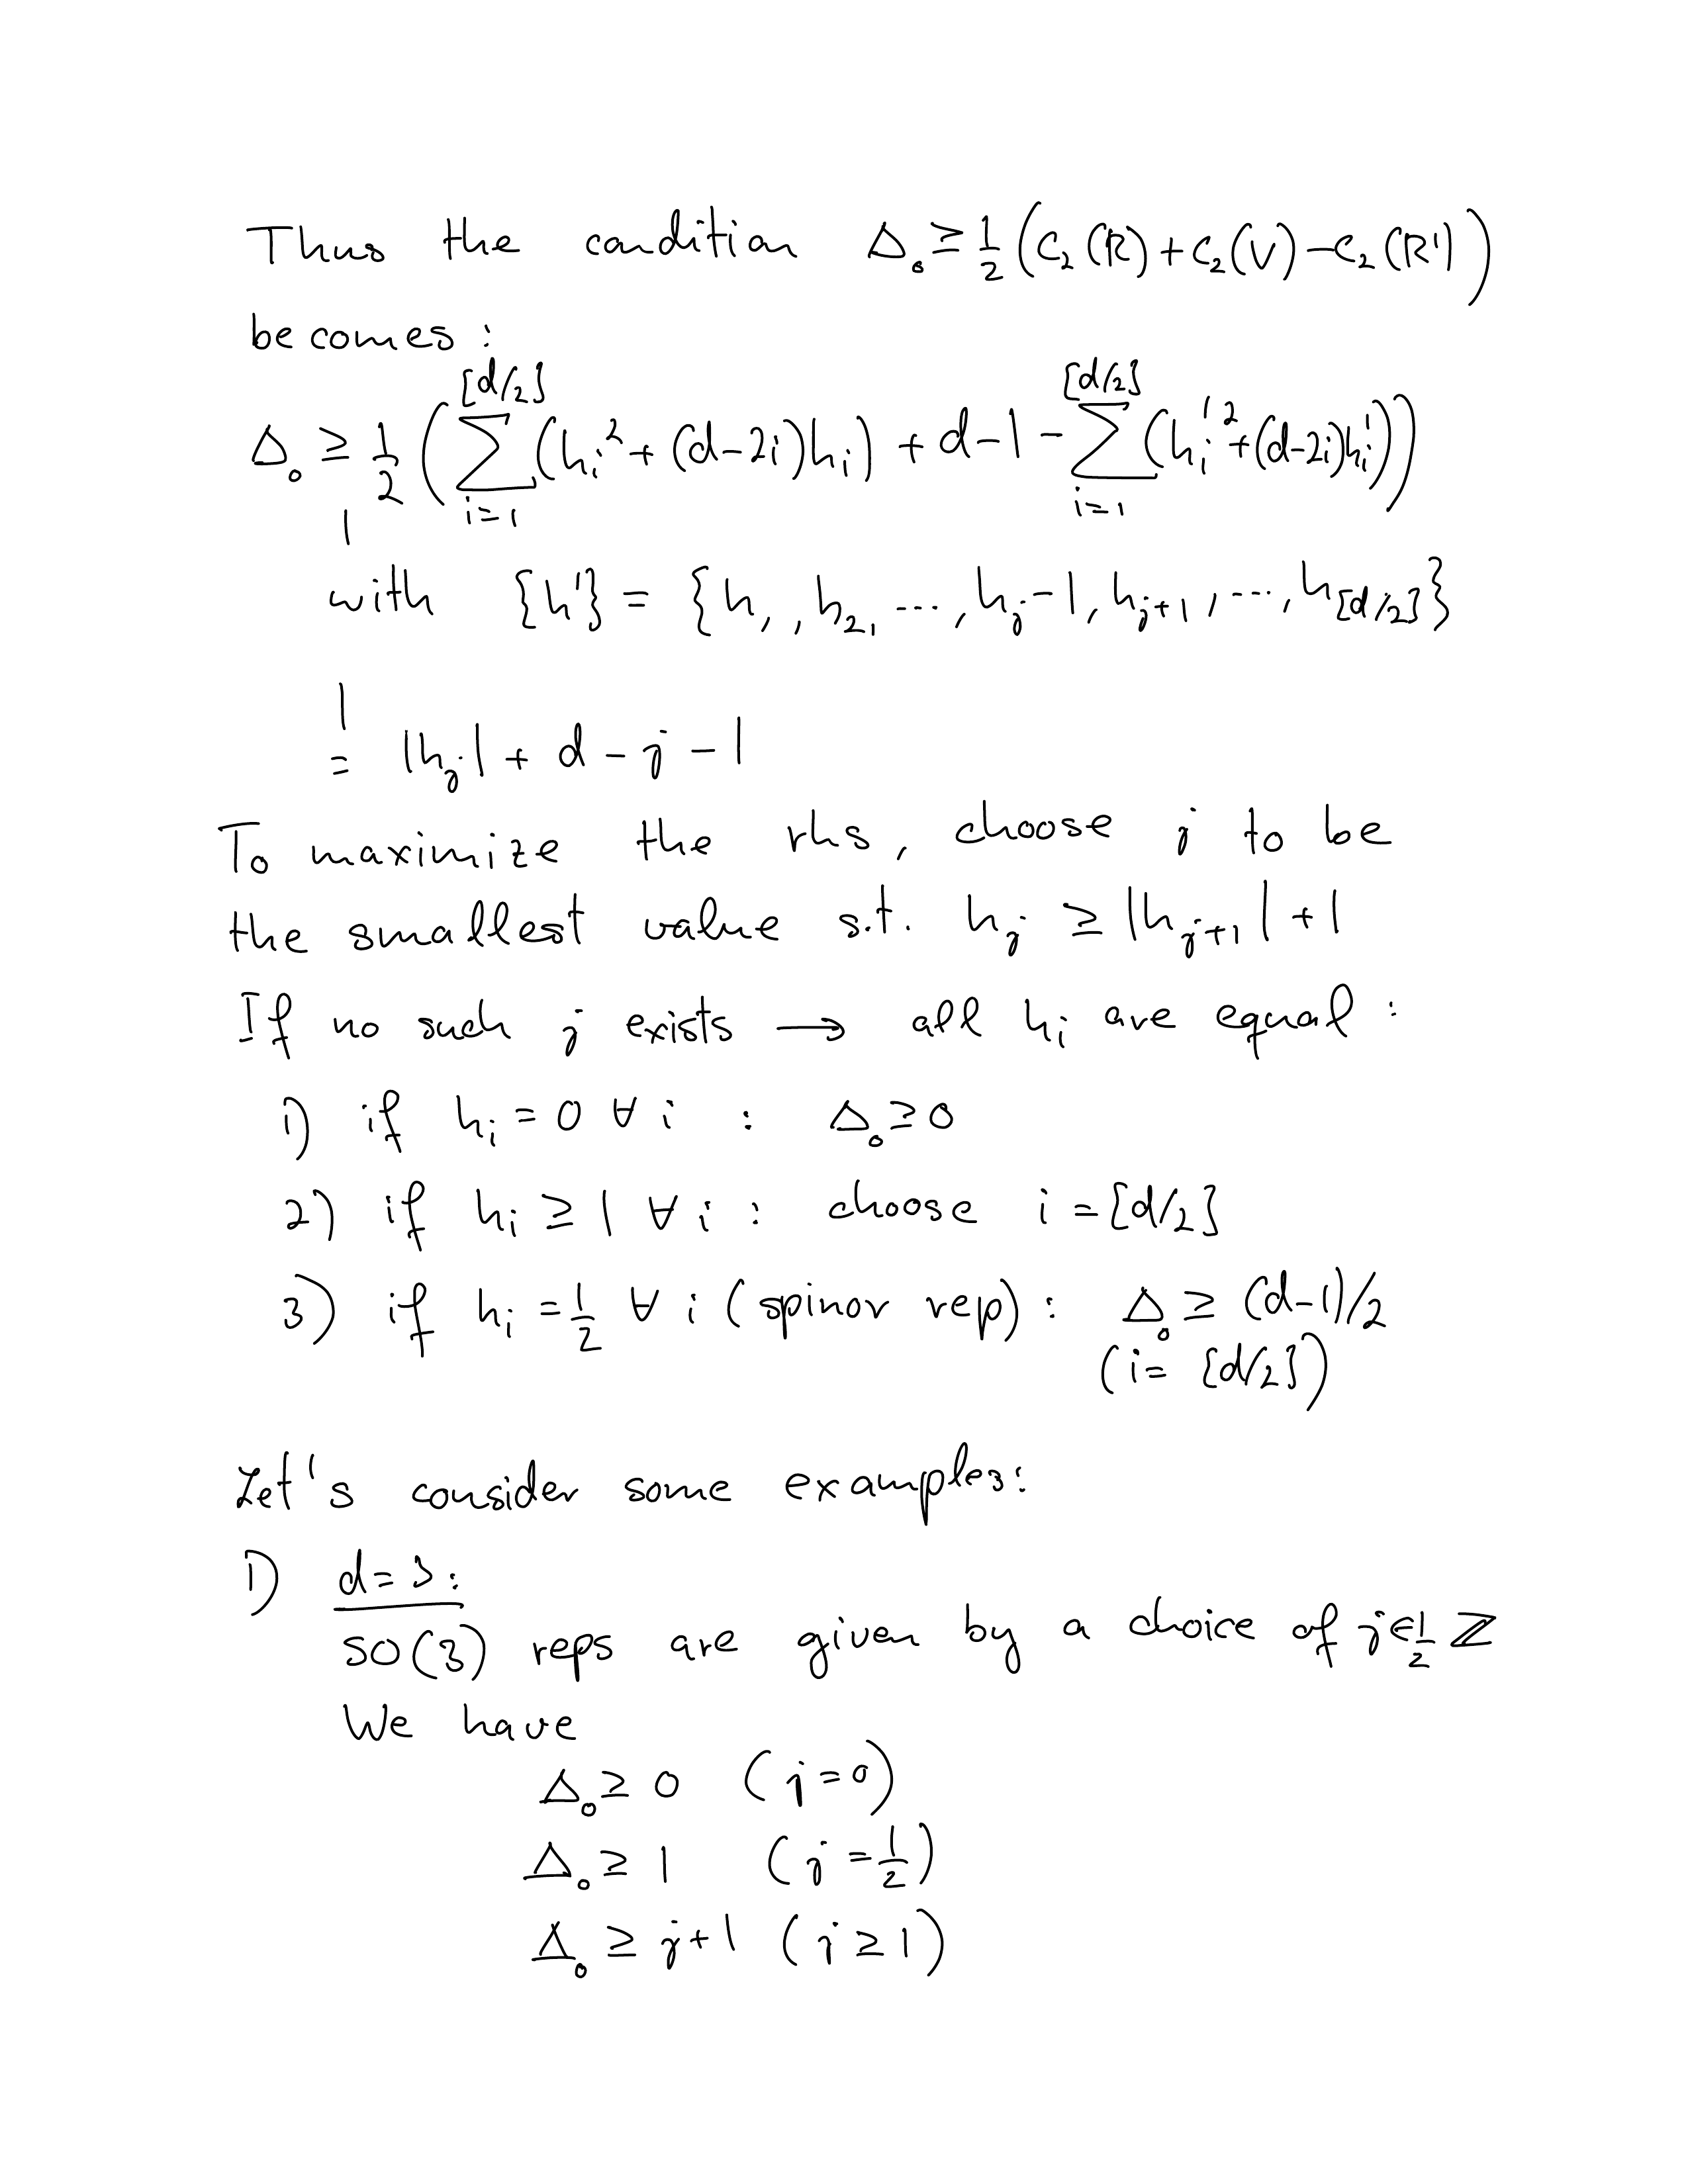 Thus the condition Δ₀ ≥ 1/2 (C₂(R) + C₂(V) − C₂(R'))
becomes:
Δ₀ ≥ 1/2 ( ∑_{i=1}^{[d/2]} (h_i² + (d−2i)h_i) + d−1 − ∑_{i=1}^{[d/2]} (h_i'² + (d−2i)h_i'))
with {h'} = {h₁, h₂, ..., h_j−1, h_{j+1}, ..., h_{[d/2]}}
= |h_j| + d − j − 1
To maximize the rhs, choose j to be
the smallest value s.t. h_j ≥ |h_{j+1}| + 1
If no such j exists → all h_i are equal:
1) if h_i = 0 ∀ i : Δ₀ ≥ 0
2) if h_i ≥ 1 ∀ i : choose i = [d/2]
3) if h_i = 1/2 ∀ i (spinor rep) : Δ₀ ≥ (d−1)/2
(i = [d/2])
Let's consider some examples:
1) d=3:
SO(3) reps are given by a choice of j ∈ 1/2 ℤ
We have
Δ₀ ≥ 0 (j=0)
Δ₀ ≥ 1 (j=1/2)
Δ₀ ≥ j+1 (j ≥ 1)